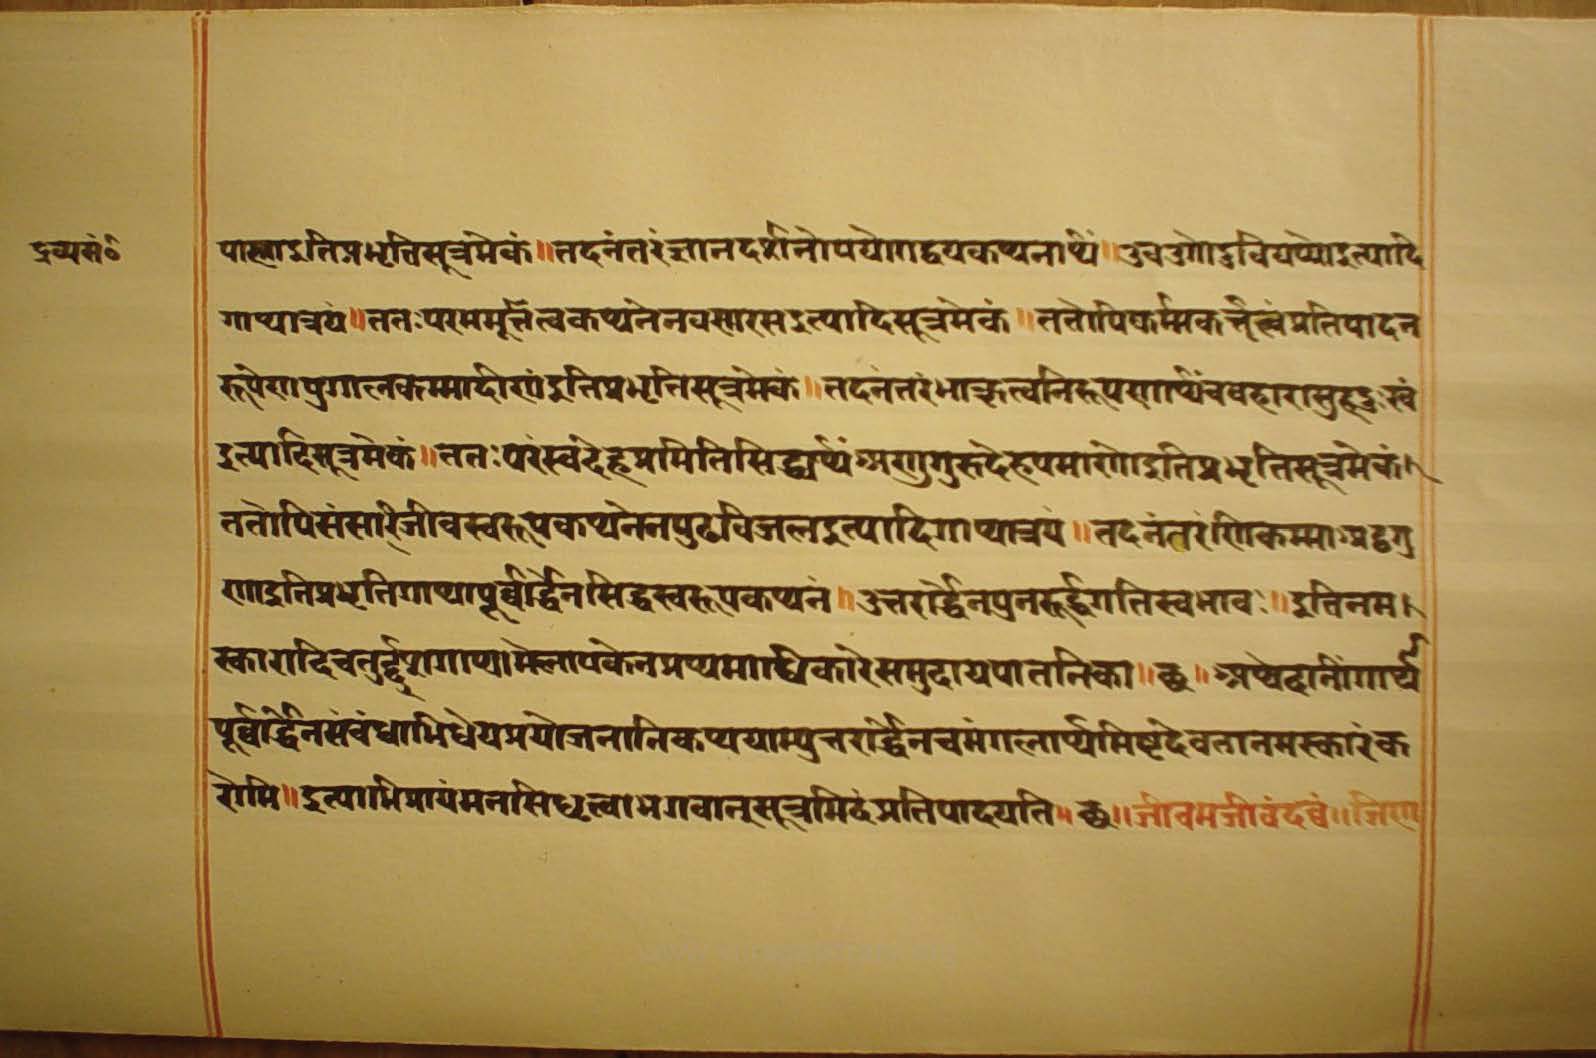 द्रव्यसं०
पाणाइतिप्रभृतिसूत्रमेकं॥तदनंतरंज्ञानदर्शनोपयोगद्वयकथनार्थं॥उवउगोदुवियप्पोइत्यादि
गाथात्रयं॥ततःपरममूर्त्तत्वकथनेनवस्मारसइत्यादिसूत्रमेकं॥ततोपिकर्म्मकर्त्तृत्वंप्रतिपादन
रूपेणपुग्गलकम्मादीणंइतिप्रभृतिसूत्रमेकं॥तदनंतरंभोक्तृत्वनिरूपणार्थंववहारासुहदुःखं
इत्यादिसूत्रमेकं॥ततःपरंस्वदेहप्रमितिसिद्ध्यर्थंअणुगुरुदेहपमाणोइतिप्रभृतिसूत्रमेकं।
ततोपिसंसारिजीवस्वरूपकथनेनपुढविजलइत्यादिगाथात्रयं॥तदनंतरंणिकम्माअट्ठगु
णाइतिप्रभृतिगाथापूर्वार्द्धेनसिद्धस्वरूपकथनं॥उत्तरार्द्धेनपुनरूर्द्ध्वगतिस्वभावः॥इतिनम।
स्कारादिचतुर्द्दशगाथामेलापकेनप्रथमाधिकारेसमुदायपातनिका॥छ॥अथेदानींगाथा
पूर्वार्द्धेनसंबंधाभिधेयप्रयोजनानिकथयाम्युत्तरार्द्धेनचमंगलार्थमिष्टदेवतानमस्कारंक
रोमि॥इत्याभिप्रायंमनसिधृत्वाभगवान्सूत्रमिदंप्रतिपादयति॥छ॥जीवमजीवंदव्वं॥जिण